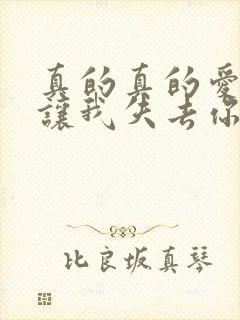 真的真的愛
讓我失去你
比良坂真琴